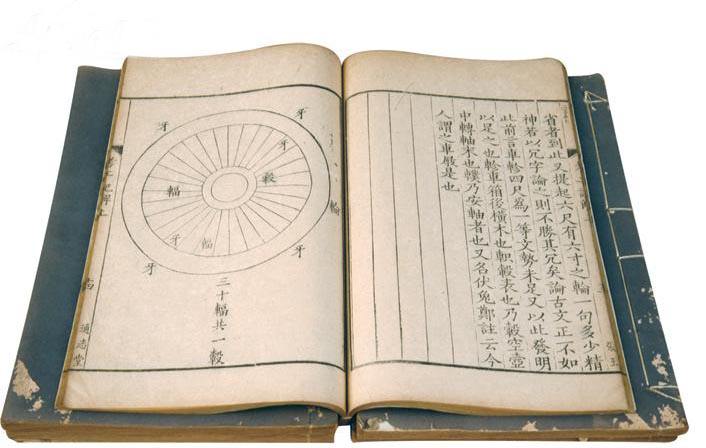 省者到此又提起六尺有六寸之輪一句多少精
神若以冗字論之則不勝其冗矣論古文正不如
此前言車軫四尺爲一等文勢未足又以此發明
以足之也軫車箱後橫木也軹轂表也乃轂空壺
中轉軸木也轐乃安軸者也又名伏兔鄭註云今
人謂之車屐是也
輪
牙
牙
牙
轂
輻
牙
輻
牙
牙
三十輻共一轂
通志堂